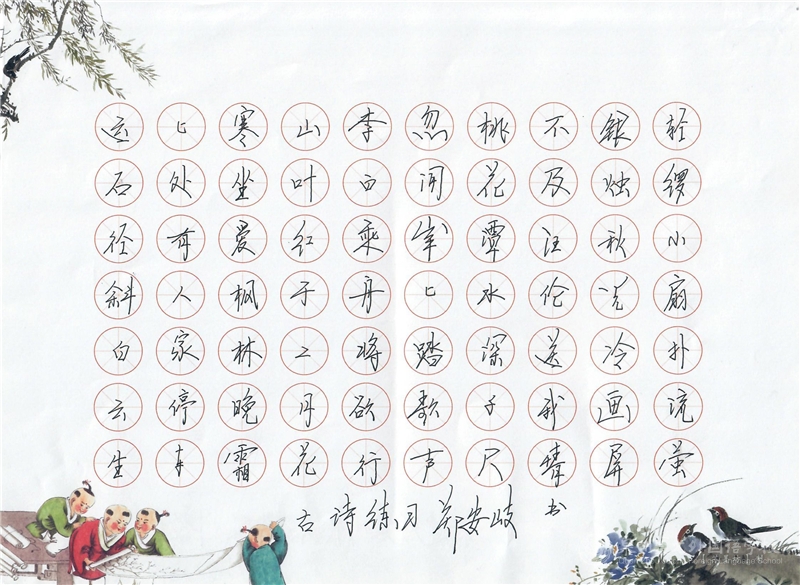 远石径斜白云生
上处有人家停车
寒坐爱枫林晚霜
山叶红于二月花
李白乘舟将欲行
忽闻岸上踏歌声
桃花潭水深千尺
不及汪伦送我情
银烛秋光冷画屏
轻罗小扇扑流萤
古诗练习 郑安岐 书